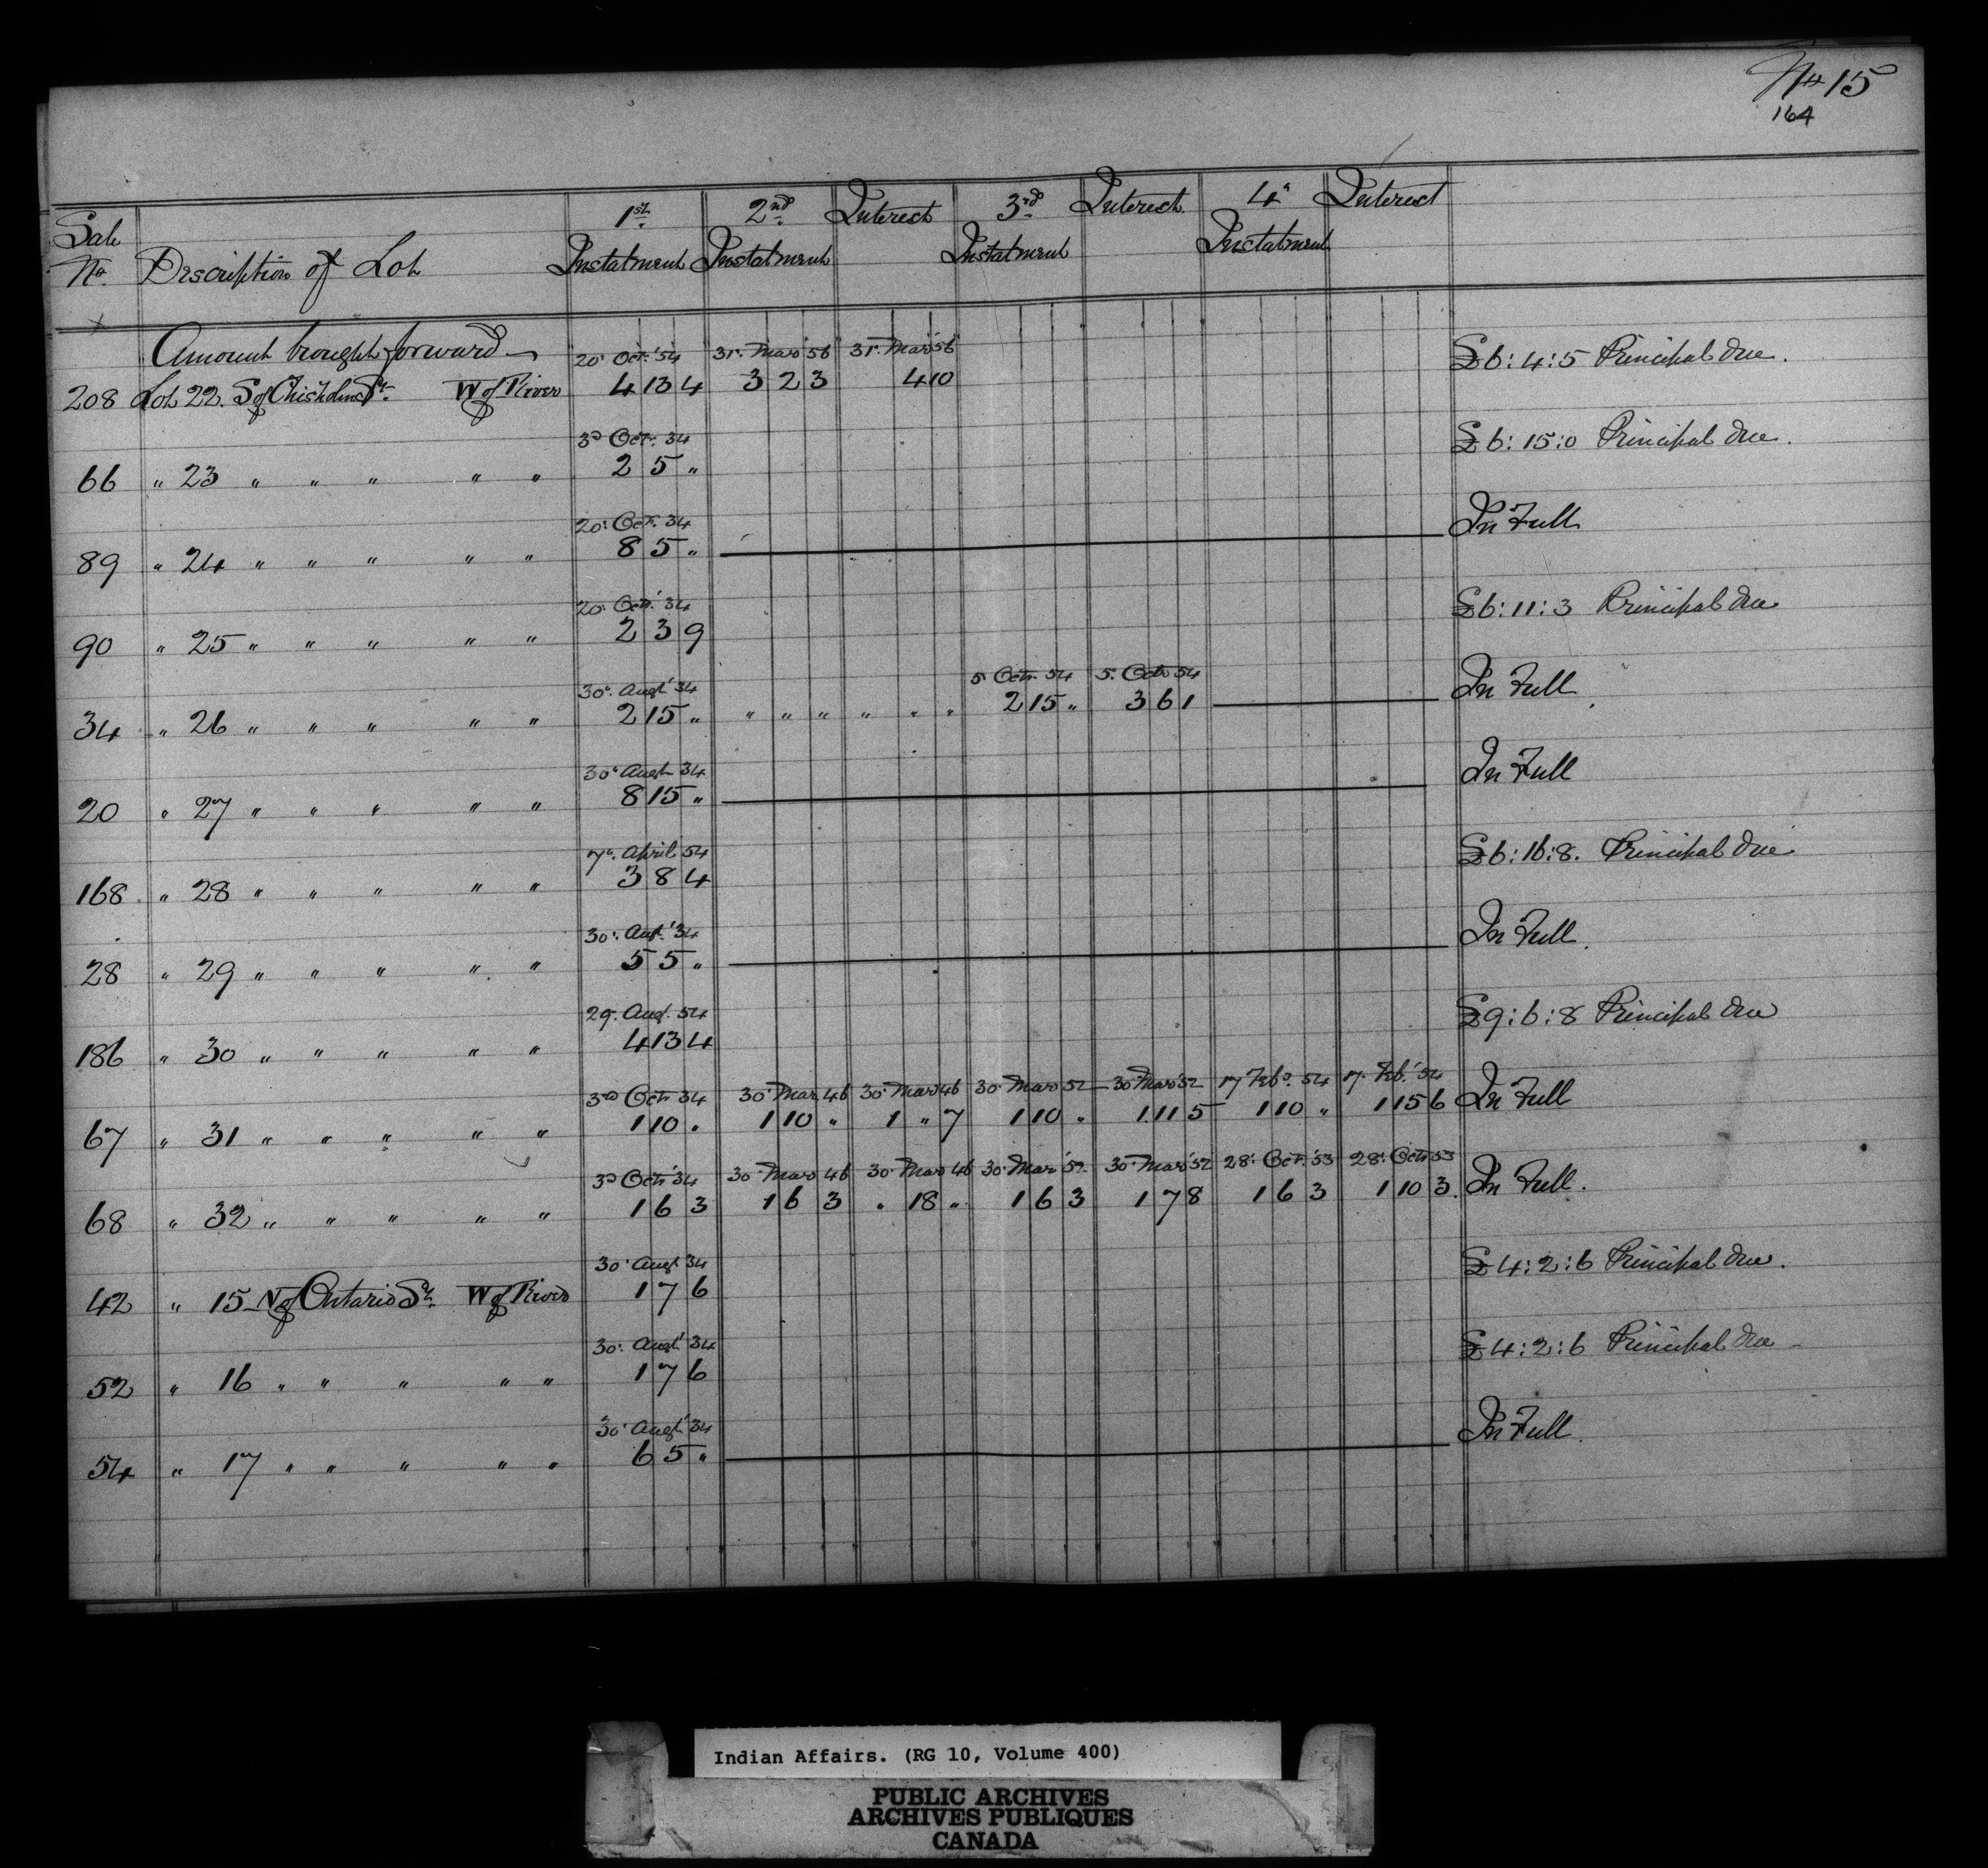 No 15
164
Sale No. Description of Lot 1st Instalment 2nd Instalment Interest 3rd Instalment Interest 4th Instalment Interest
Amount brought forward 20. Oct. '54 31. Mar '56 31. Mar '56 £6:4:5 Principal due.
208 Lot 22. S of Chisholm St. W of River 4 13 4 3 2 3 4 10
3d Oct. 34 £6:15:0 Principal due.
66 " 23 " " " " " 2 5 "
20. Oct. 34 In Full
89 " 24 " " " " " 8 5 "
20. Oct. '34 £6:11:3 Principal due
90 " 25 " " " " " 2 3 9
30. Augt '34 5 Oct. 54 5. Oct 54 In Full
34 " 26 " " " " " 2 15 " " " " " " " 2 15 " 3 6 1
30. Augt 34 In Full
20 " 27 " " " " " 8 15 "
7th. April 54 £6:16:8. Principal due
168 " 28 " " " " " 3 8 4
30. Augt. '34 In Full.
28 " 29 " " " " " 5 5 "
29. Augt. 54 £9:6:8 Principal due
186 " 30 " " " " " 4 13 4
3rd Oct 34 30. Mar 46 30. Mar 46 30. Mar 52 30 Mar '52 17 Feb. 54 17. Feb. '54 In Full
67 " 31 " " " " " 1 10 " 1 10 " 1 " 7 1 10 " 1 11 5 1 10 " 1 15 6
3d Oct '34 30. Mar 46 30. Mar 46 30. Mar '52 30. Mar '52 28. Oct. '53 28. Oct 53 In Full.
68 " 32 " " " " " 1 6 3 1 6 3 " 18 " 1 6 3 1 7 8 1 6 3 1 10 3
30. Augt 34 £4:2:6 Principal due.
42 " 15 N of Ontario St. W of River 1 7 6
30. Augt '34 £4:2:6 Principal due
52 " 16 " " " " " 1 7 6
30. Augt '34 In Full.
54 " 17 " " " " " 6 5 "
Indian Affairs. (RG 10, Volume 400)
PUBLIC ARCHIVES
ARCHIVES PUBLIQUES
CANADA